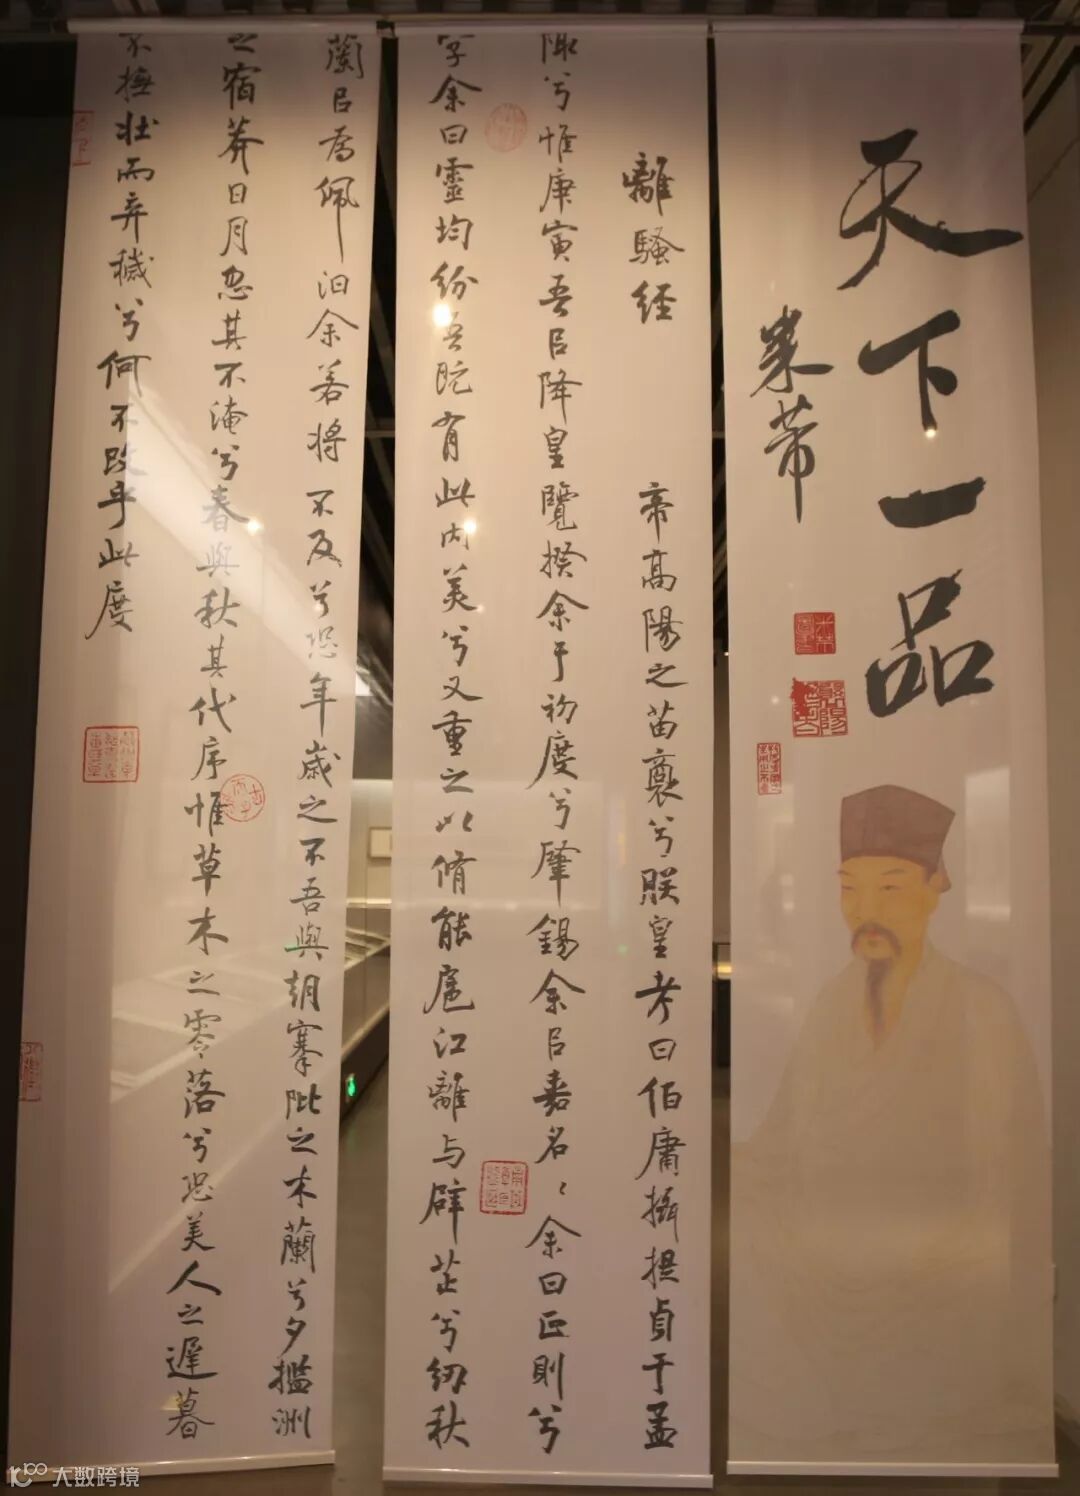 天下一品
米芾
離騷經
帝高陽之苗裔兮朕皇考曰伯庸攝提貞于孟
陬兮惟庚寅吾㠯降皇覽揆余于初度兮肇錫余㠯嘉名名余曰正則兮
字余曰靈均紛吾既有此内美兮又重之以脩能扈江離与辟芷兮紉秋
蘭㠯為佩汨余若将不及兮恐年歲之不吾與朝搴阰之木蘭兮夕攬洲
之宿莽日月忽其不淹兮春與秋其代序惟草木之零落兮恐美人之遲暮
不撫壯而弃穢兮何不改乎此度
大数跨境